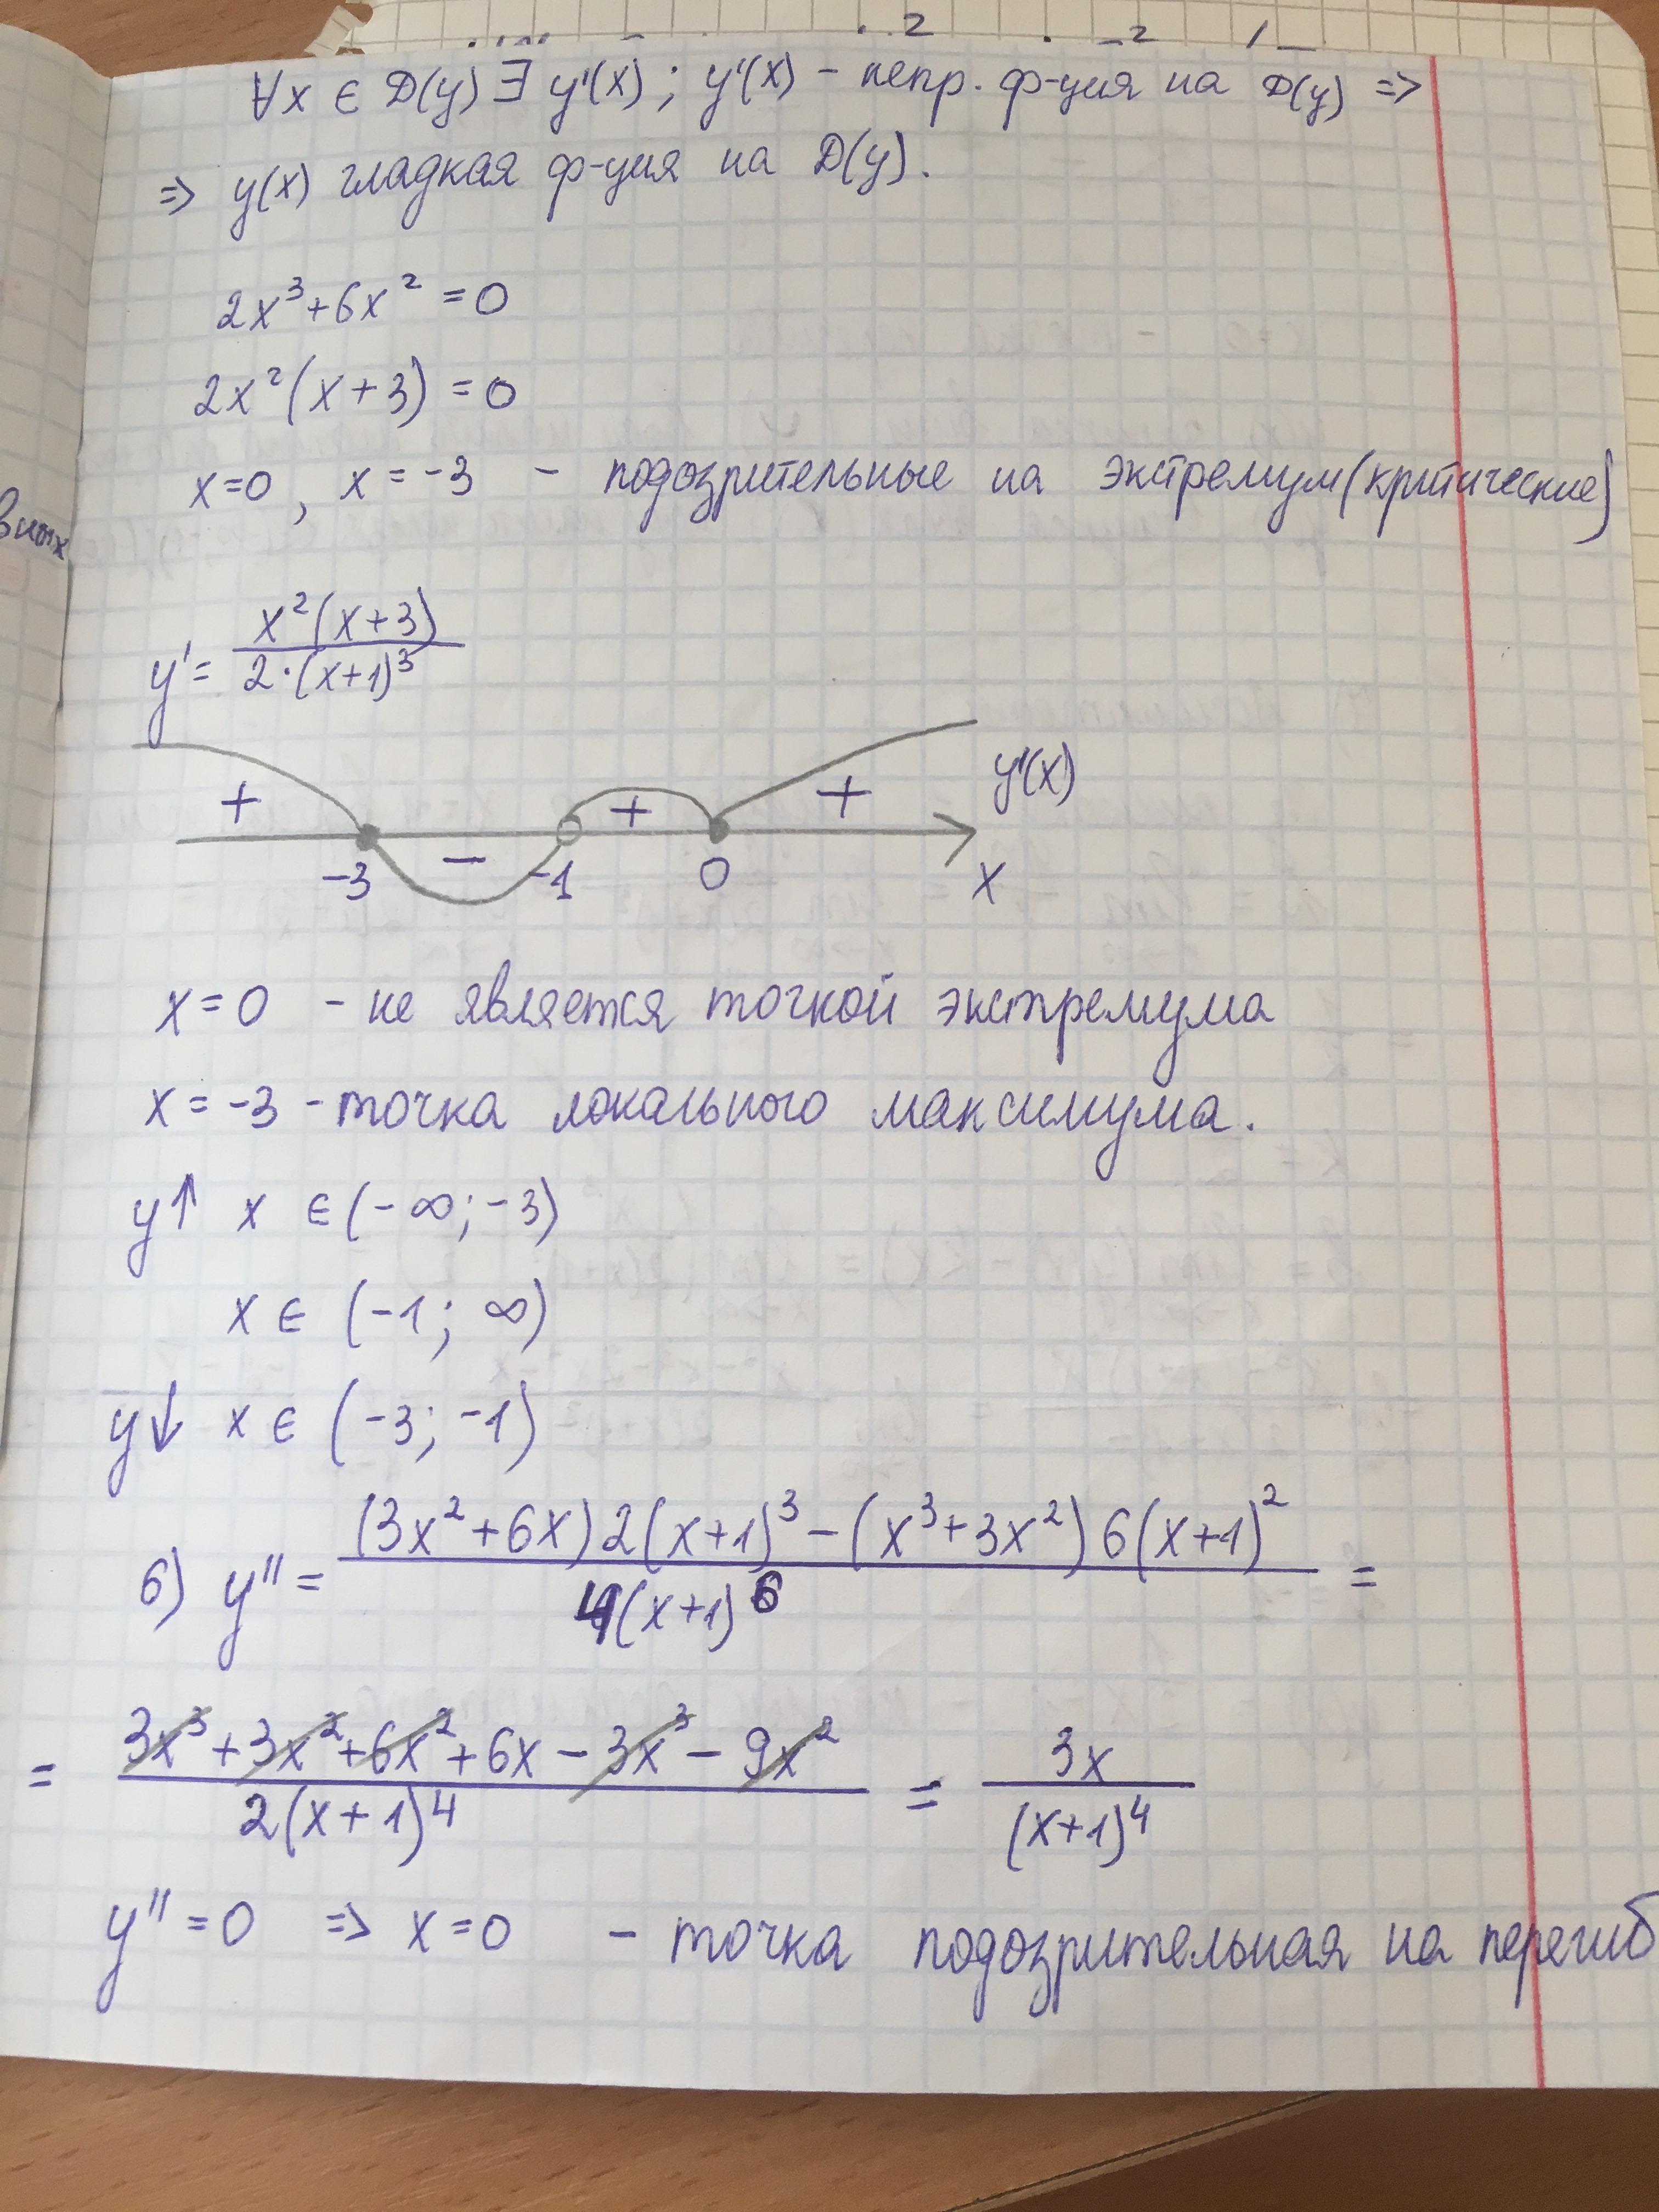 ∀x ∈ D(y) ∃ y'(x); y'(x) - непр. ф-ция на D(y) =>
=> y(x) гладкая ф-ция на D(y).
2x³+6x² = 0
2x²(x+3) = 0
x=0, x=-3 - подозрительные на экстремум(критические)
y' = x²(x+3) / 2·(x+1)³
+ - + + y'(x)
-3 -1 0 x
x=0 - не является точкой экстремума
x=-3 - точка локального максимума.
y↑ x ∈ (-∞; -3)
x ∈ (-1; ∞)
y↓ x ∈ (-3; -1)
6) y'' = (3x²+6x)2(x+1)³-(x³+3x²)6(x+1)² / 4(x+1)⁶ =
= 3x³+3x²+6x²+6x-3x³-9x² / 2(x+1)⁴ = 3x / (x+1)⁴
y''=0 => x=0 - точка подозрительная на перегиб